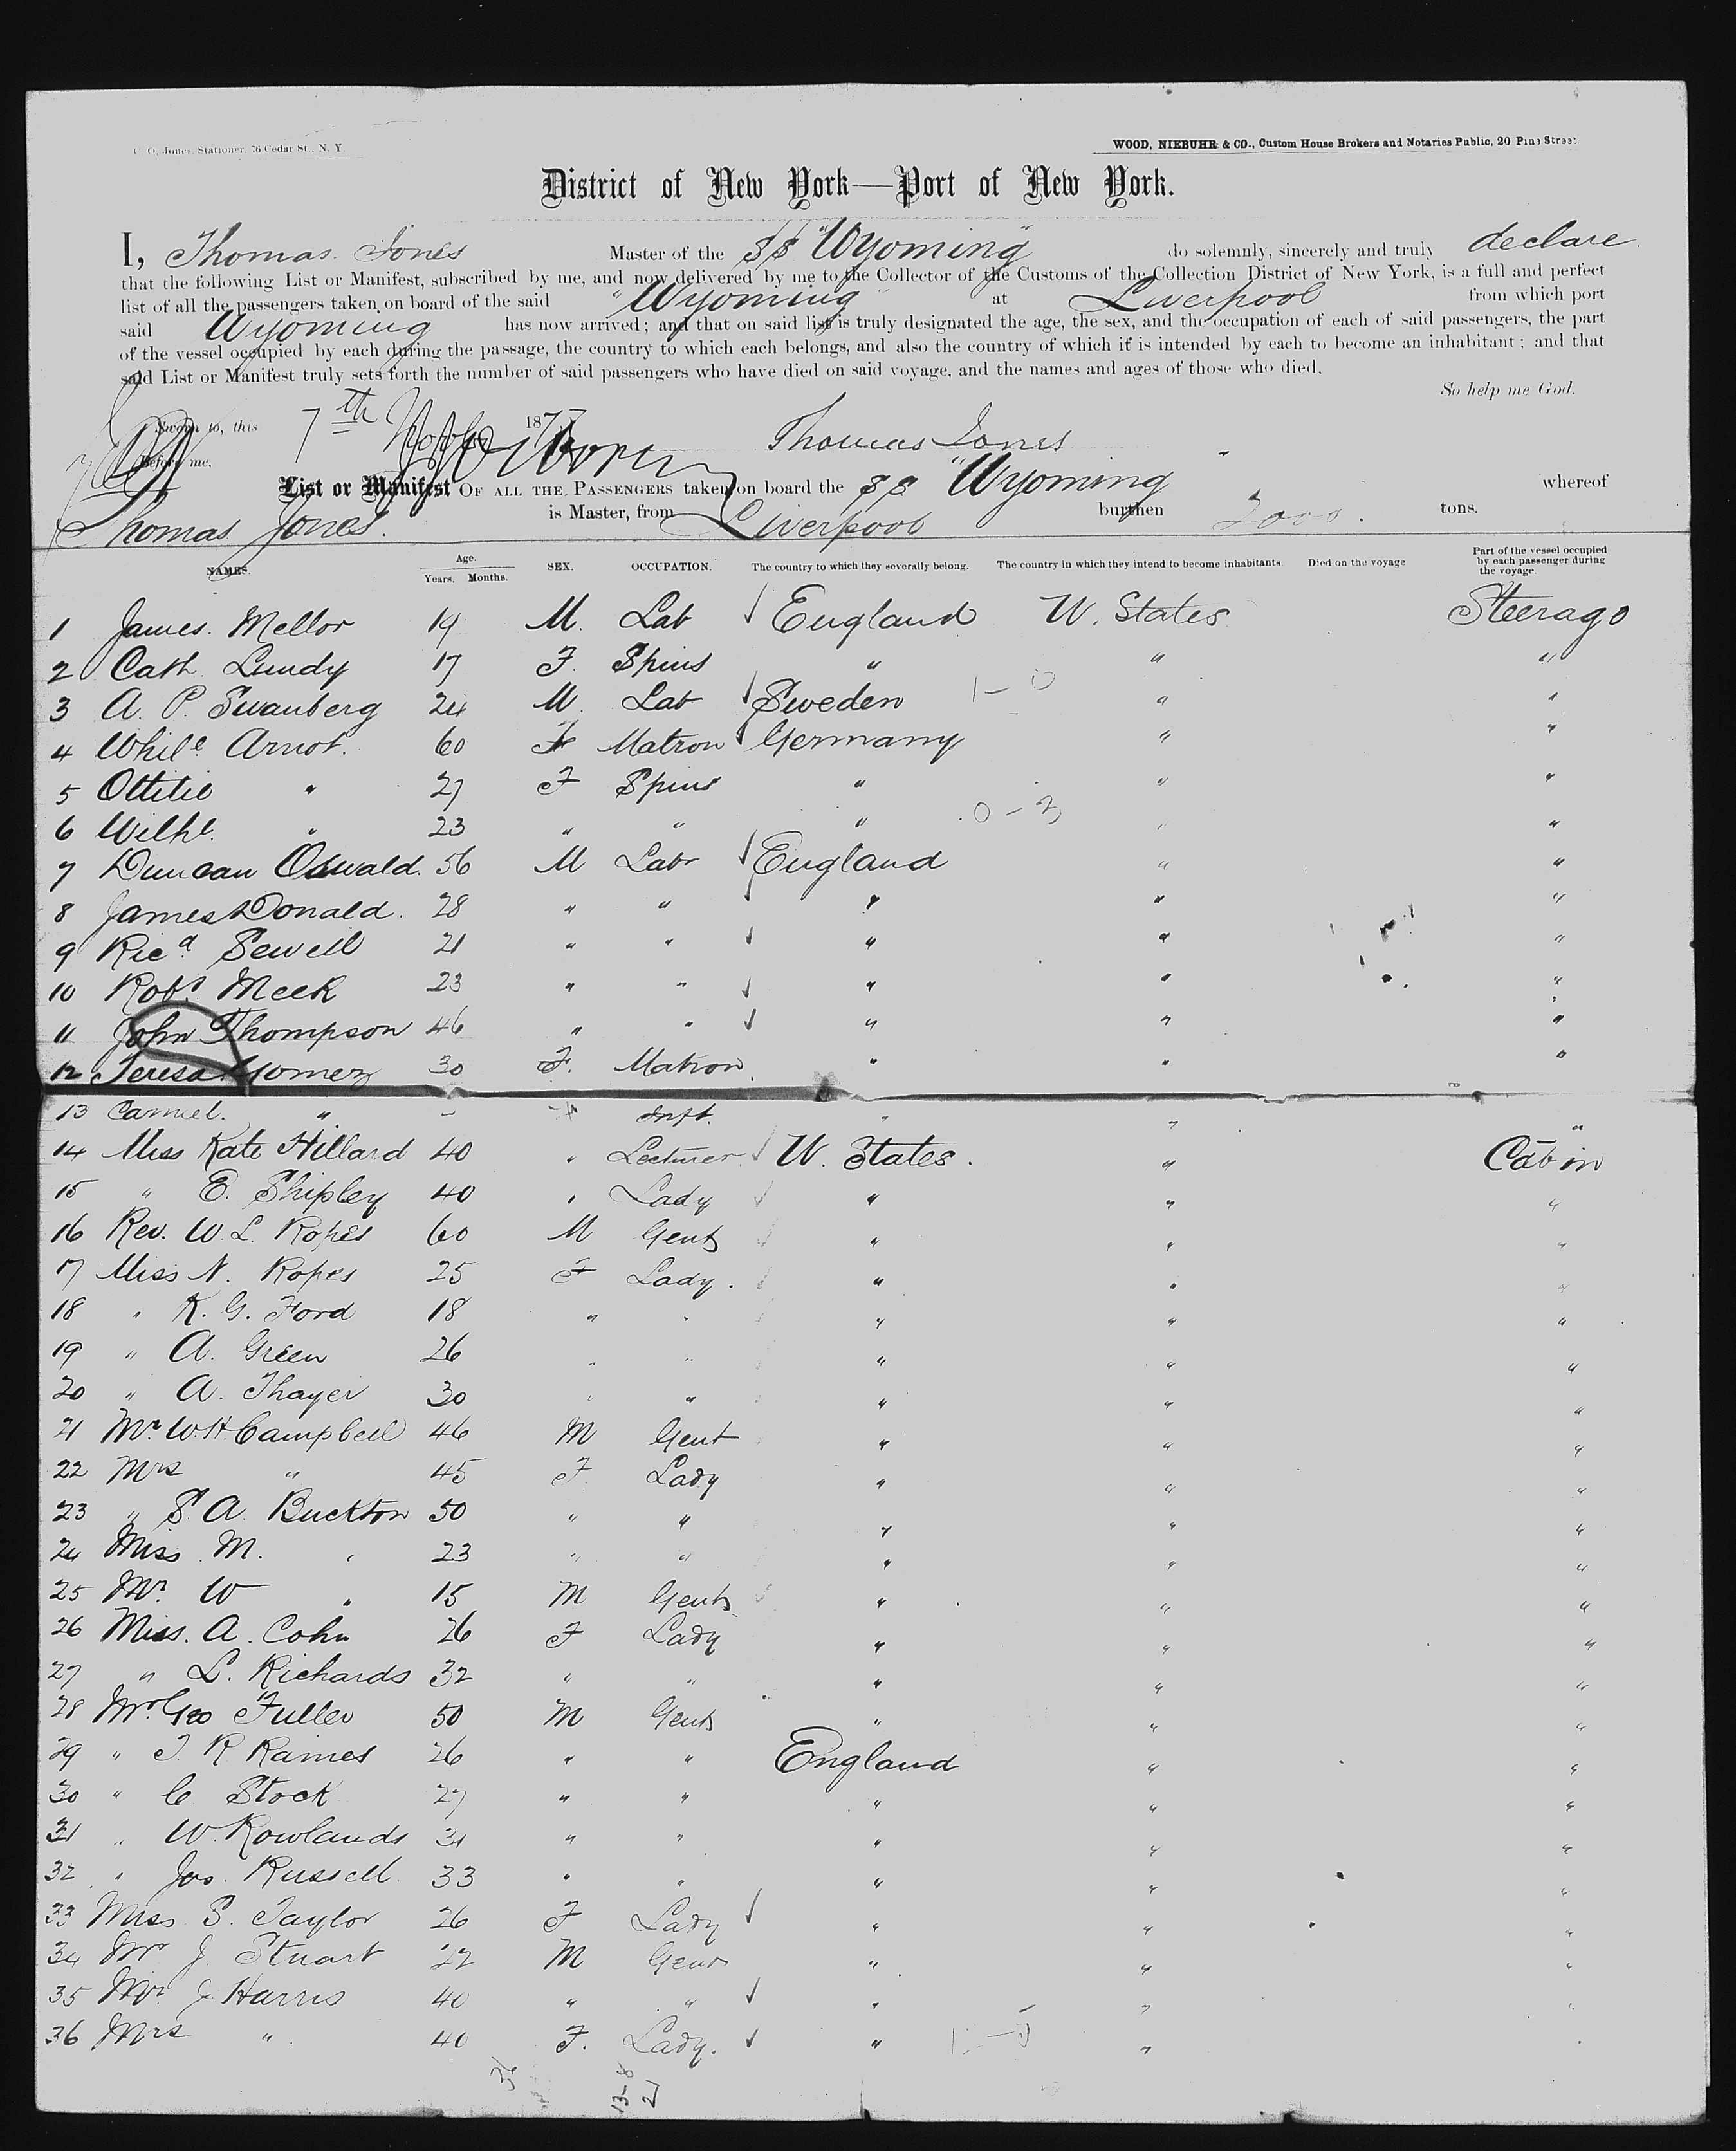 C. O. Jones, Stationer, 76 Cedar St., N. Y.
WOOD, NIEBUHR & CO., Custom House Brokers and Notaries Public, 20 Pine Street
District of New York—Port of New York.
I, Thomas Jones Master of the SS "Wyoming" do solemnly, sincerely and truly declare
that the following List or Manifest, subscribed by me, and now delivered by me to the Collector of the Customs of the Collection District of New York, is a full and perfect
list of all the passengers taken on board of the said "Wyoming" at Liverpool from which port
said Wyoming has now arrived; and that on said list is truly designated the age, the sex, and the occupation of each of said passengers, the part
of the vessel occupied by each during the passage, the country to which each belongs, and also the country of which it is intended by each to become an inhabitant; and that
said List or Manifest truly sets forth the number of said passengers who have died on said voyage, and the names and ages of those who died.
So help me God.
Sworn to, this 7th Novbr 1877 Thomas Jones
Before me,
List or Manifest OF ALL THE PASSENGERS taken on board the SS "Wyoming whereof
Thomas Jones. is Master, from Liverpool burthen 2000. tons.
NAMES. Age. Years. Months. SEX. OCCUPATION. The country to which they severally belong. The country in which they intend to become inhabitants. Died on the voyage Part of the vessel occupied by each passenger during the voyage.
1 James Mellor 19 M. Lab England U. States Steerage
2 Cath Lundy 17 F. Spins " " "
3 A. P. Swanberg 24 M. Lab Sweden 1-0 " "
4 While Arnot. 60 F Matron Germany " "
5 Ottilie " 27 F Spins " " "
6 Wilhe. " 23 " " " 0-3 " "
7 Duncan Oswald. 56 M Labr England " "
8 James Donald. 28 " " " " "
9 Ricd. Sewell 21 " " " " "
10 Robt. Meek 23 " " " " "
11 John Thompson 46 " " " " "
12 Teresa Gomez 30 F. Matron. " " "
13 Carmel. " - Inft. " " "
14 Miss Kate Hillard 40 " Lecturer. U. States. " Cabin
15 " E. Shipley 40 " Lady " " "
16 Rev. W. L. Ropes 60 M Gent " " "
17 Miss N. Ropes 25 F Lady. " " "
18 " K. G. Ford 18 " " " " "
19 " A. Green 26 " " " " "
20 " A. Thayer 30 " " " " "
21 Mr. W. H. Campbell 46 M Gent " " "
22 Mrs " 45 F Lady " " "
23 " S. A. Buckton 50 " " " " "
24 Miss M. " 23 " " " " "
25 Mr. W " 15 M Gent " " "
26 Miss. A. Cohn 26 F Lady " " "
27 " L. Richards 32 " " " " "
28 Mr. Geo Fuller 50 M Gent " " "
29 " J. R Raines 26 " " England " "
30 " C. Stock 27 " " " " "
31 " W. Rowlands 31 " " " " "
32 " Jos. Russell 33 " " " " "
33 Miss S. Taylor 26 F Lady " " "
34 Mr J. Stuart 22 M Gent " " "
35 Mr. J Harris 40 " " " " "
36 Mrs " 40 F. Lady. " "
13-8
21